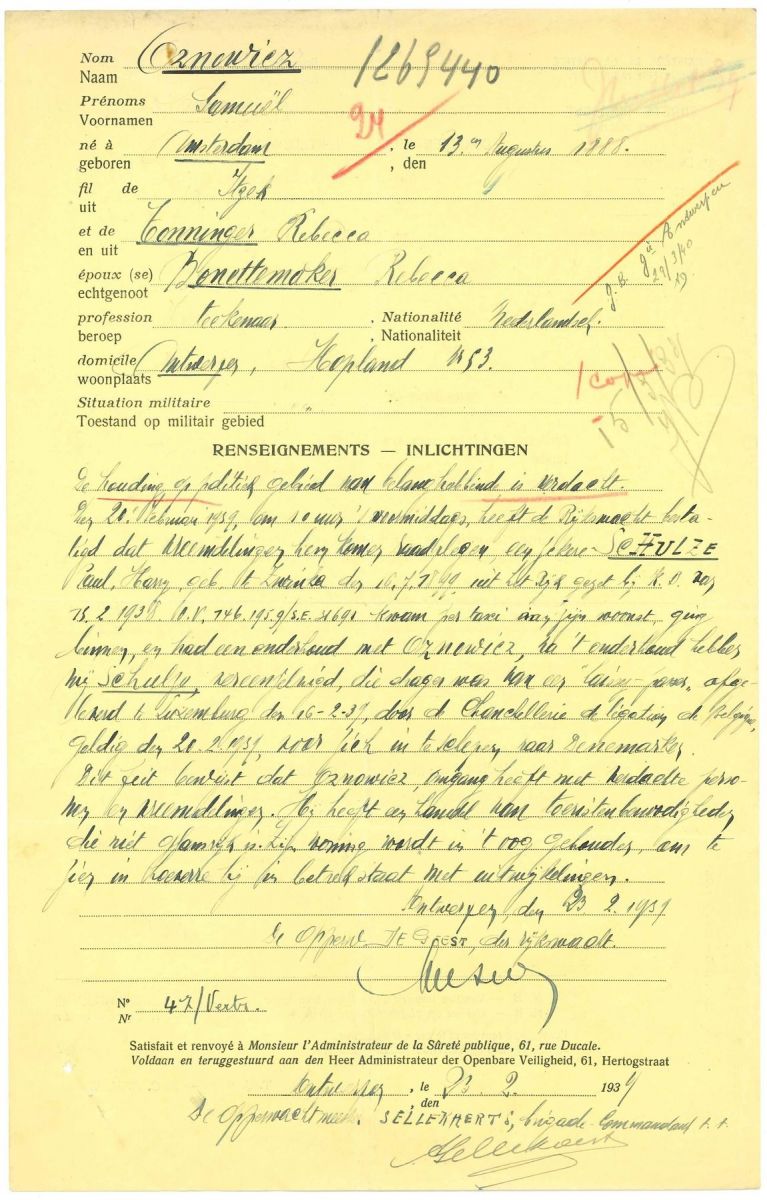 Nom Oznowicz 1269440
Naam
Prénoms Samuël
Voornamen
24
né à Amsterdam , le 13 Augustus 1888.
geboren , den
fil de Itzek
uit
et de Tonninger Rebecca
en uit
époux (se) Rebecca
echtgenoot
J.B. Antwerpen
29/3/40
profession , Nationalité Nederlandsch.
beroep , Nationaliteit
domicile Antwerpen, Hopland 53.
woonplaats
1 copie
Situation militaire "
Toestand op militair gebied
RENSEIGNEMENTS — INLICHTINGEN
De houding op politiek gebied van belanghebbend is verdacht.
Den 20 Februari 1939, om 10 uur 's voormiddags, heeft de Rijkswacht besta-
tigd dat vreemdelingen een zekere SCHULZE
Paul, Harry, geb. te Zwickau den 10.7.1899 uit het Rijk gezet bij K.B. van
15.2.1938 kwam per taxi zijn woonst, ging
binnen, en had een onderhoud met Oznowicz, na 't onderhoud hebben
wij Schulze vereenzelvigd, die drager was van een "laisser-passer" afge-
leverd te Luxemburg den 16-2-39, door de Chancellerie de légation de Belgique,
geldig den 20.2.1939, voor zich in te schepen naar Denemarken.
Dit feit bewijst dat Oznowicz, omgang heeft met verdachte perso-
nen en vreemdelingen. Hij heeft een handel van toeristenbenoodigheden
die niet is. Zijn woning wordt in 't oog gehouden, om te
zien in hoeverre hij in betrek staat met uitwijkelingen.
Antwerpen, den 23 2. 1939
De Opperw DE GEEST, der Rijkswacht.
N° 47/Vertr.
Nr
Satisfait et renvoyé à Monsieur l'Administrateur de la Sûreté publique, 61, rue Ducale.
Voldaan en teruggestuurd aan den Heer Administrateur der Openbare Veiligheid, 61, Hertogstraat
Antwerpen , le 23. 2. 1939
, den
De Opperwachtmeester SELLEKAERTS, brigade-Commandant t. t.